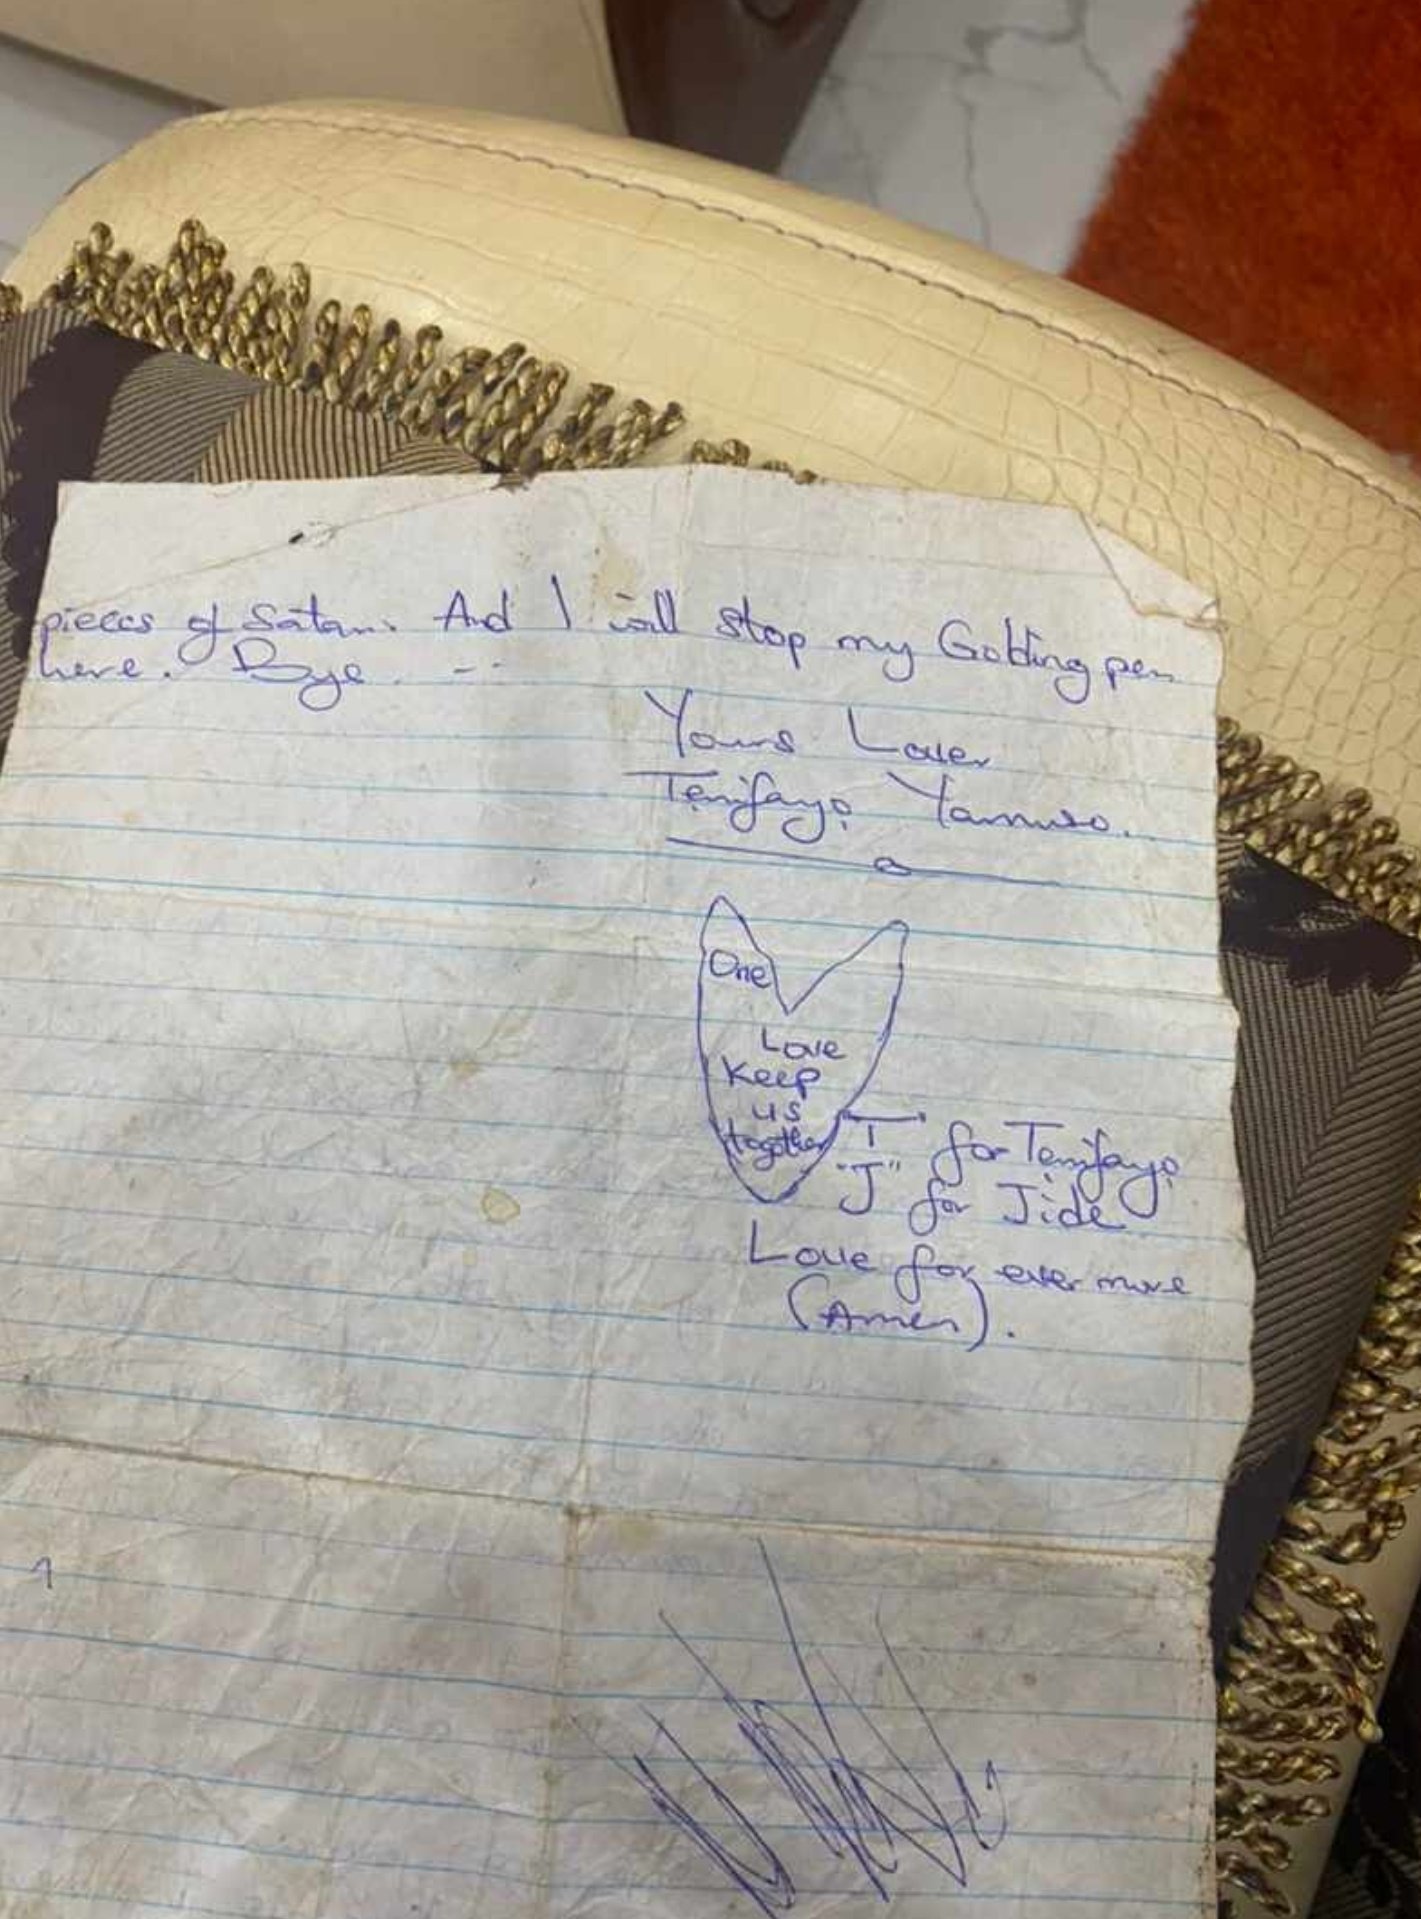 pieces of Satan. And I will stop my Golding pen
here. Bye. --
Yours Lover
Tẹmifayọ
One
Love
Keep
us
together
T for Tẹmifayọ
"J" for Jide
Love for ever more
(Amen).